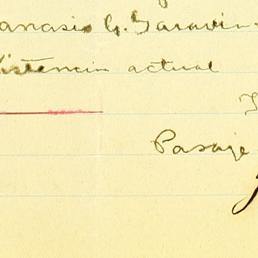 anasio G. Saravia
istencia actual
Pasaje